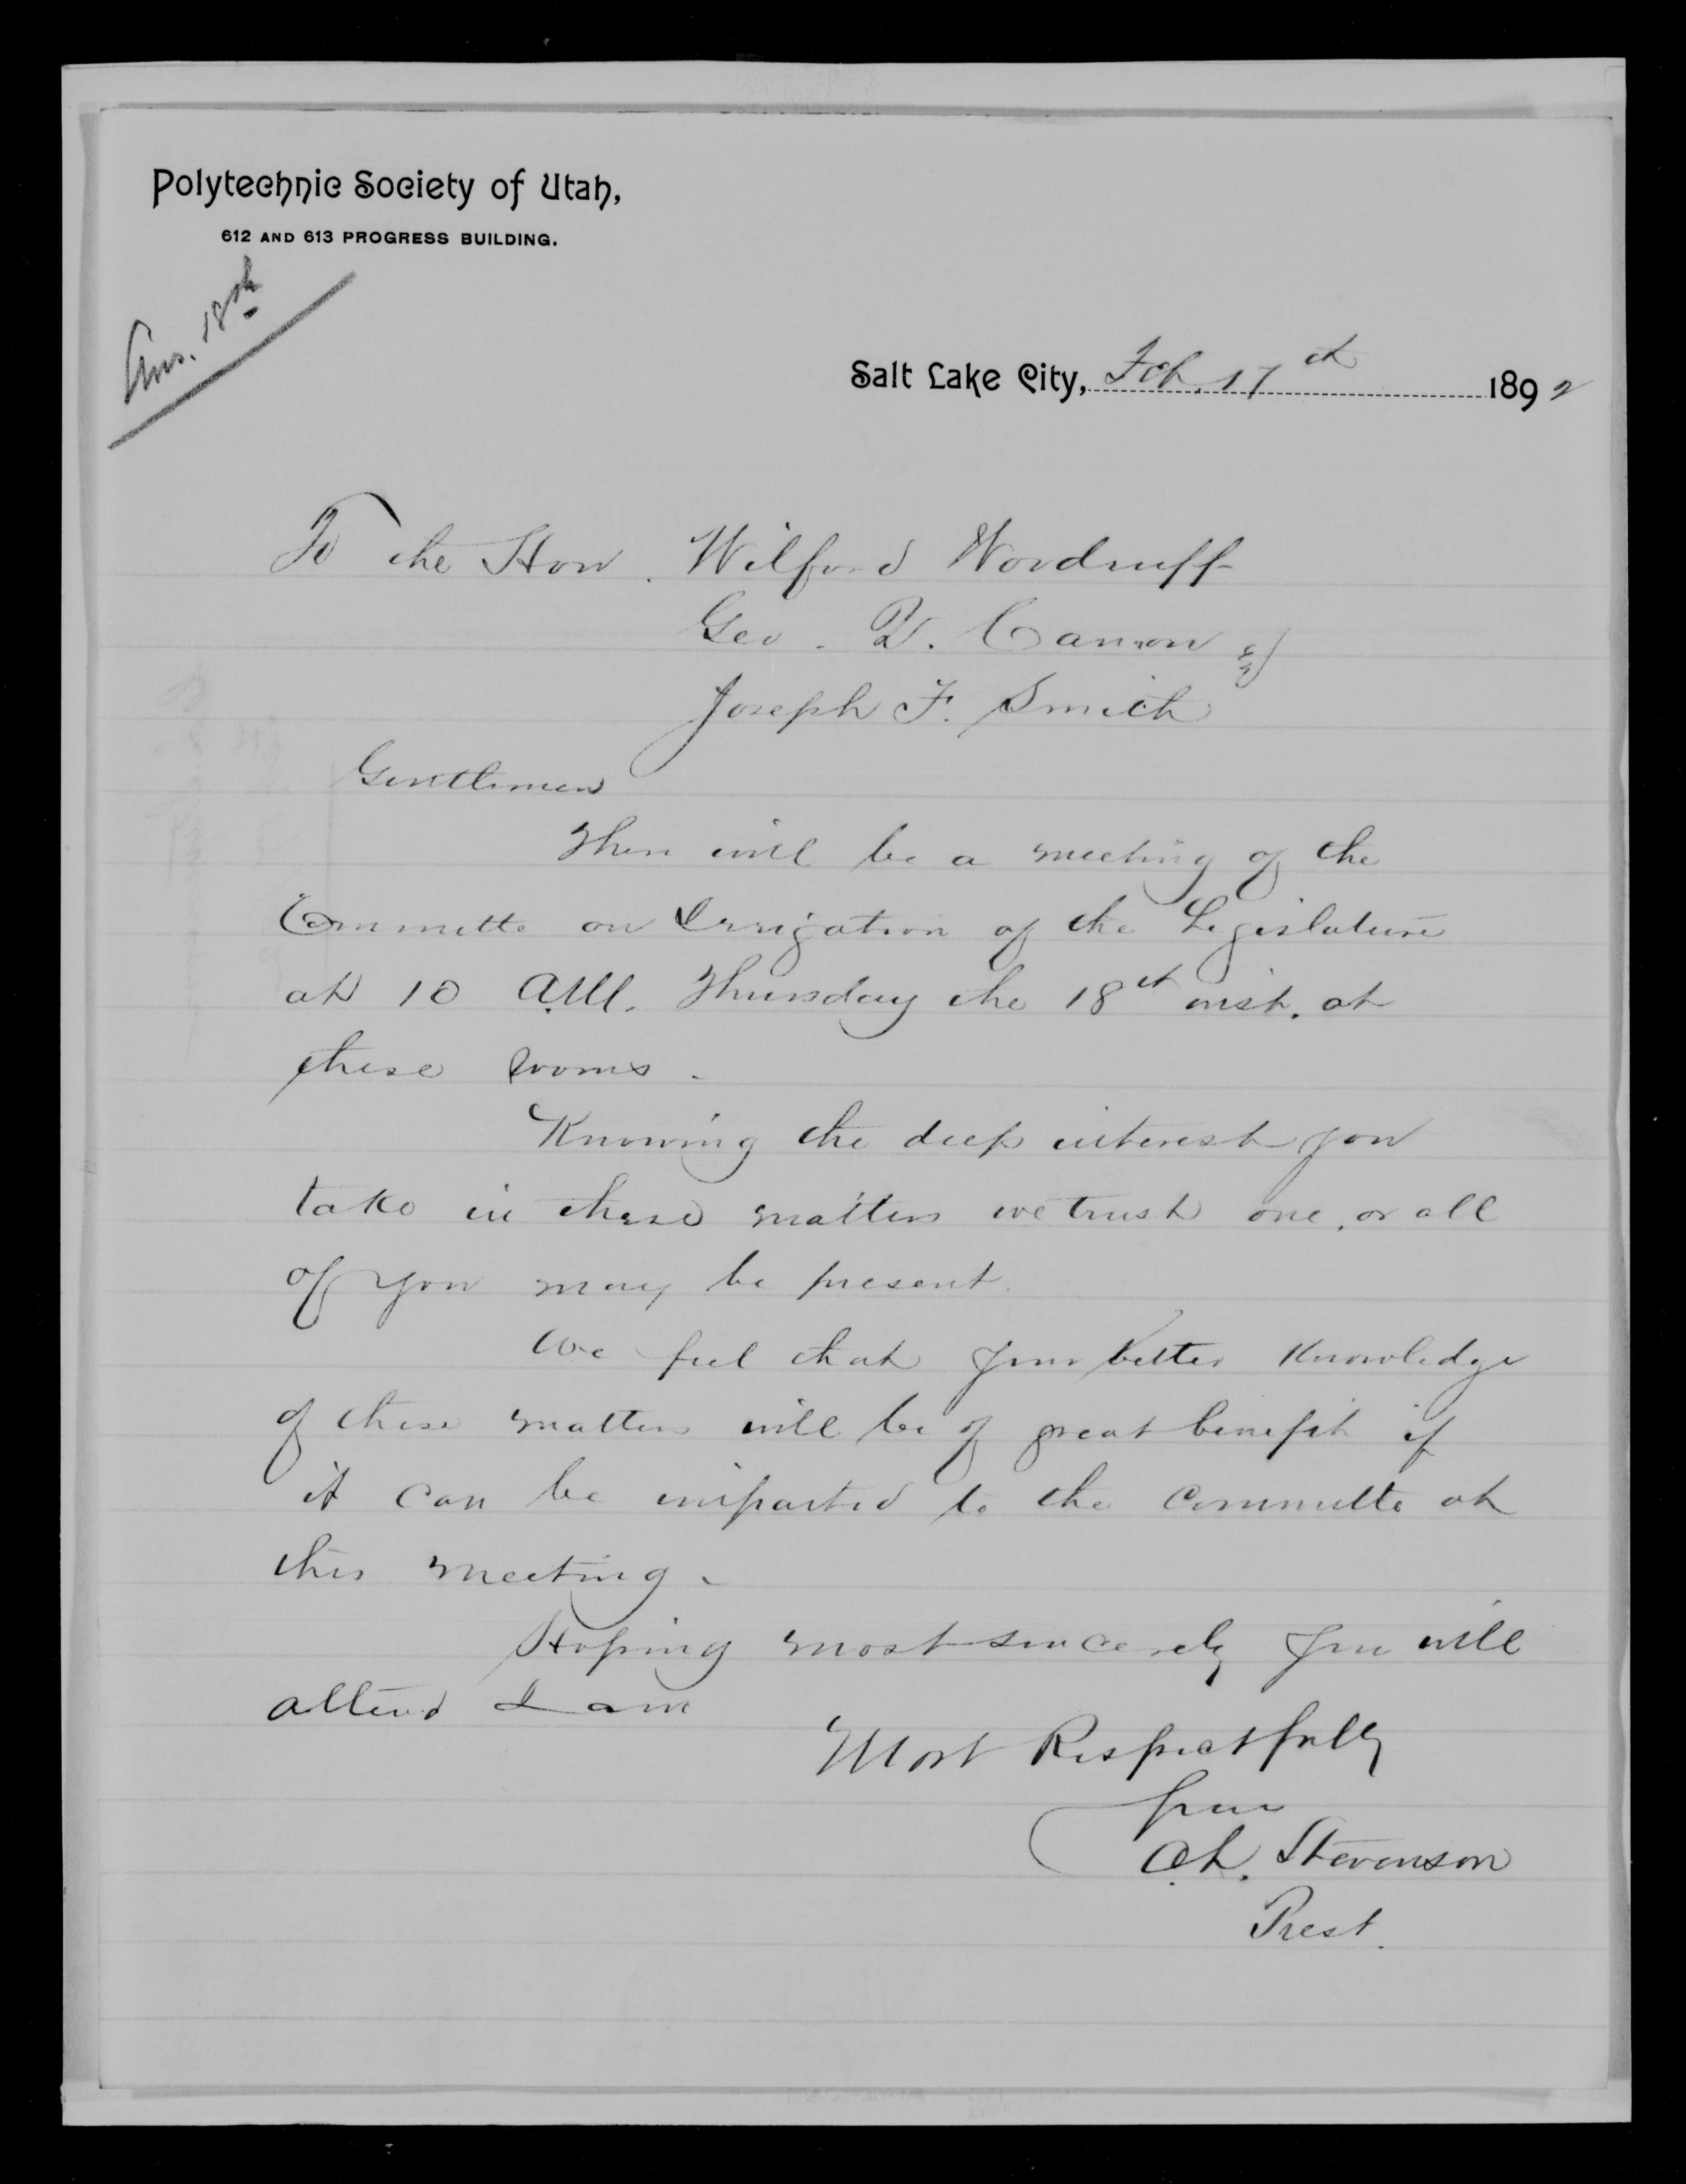 Polytechnic Society of Utah,
612 AND 613 PROGRESS BUILDING.
Ans. 18th
Salt Lake City, Feb. 17th 1892
To the Hon. Wilford Woodruff
Geo. Q. Cannon &
Joseph F. Smith
Gentlemen
There will be a meeting of the
Committe on Irrigation of the Legislature
at 10 A.M. Thursday the 18th inst. at
these rooms.
Knowing the deep interest you
take in these matters we trust one, or all
of you may be present.
We feel that your better knowledge
of these matters will be of great benefit if
it can be imparted to the Committe at
this meeting.
Hoping most sincerely you will
attend I am
Most Respectfully
Yours
C.L. Stevenson
Prest.